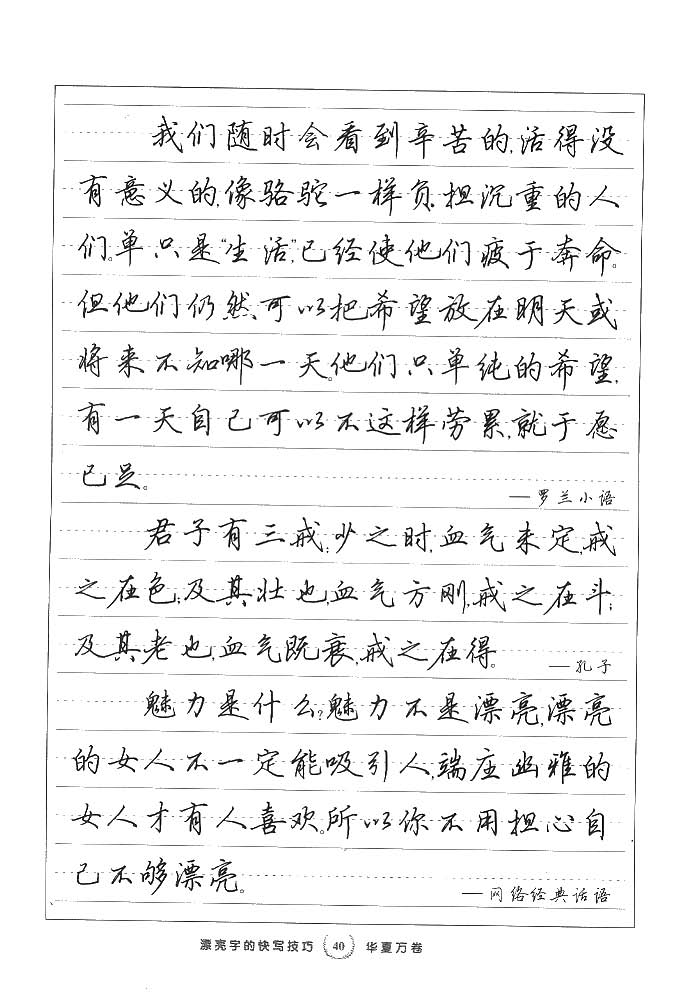 我们随时会看到辛苦的,活得没
有意义的,像骆驼一样负担沉重的人
们。单只是“生活”,已经使他们疲于奔命。
但他们仍然可以把希望放在明天或
将来不知哪一天。他们只单纯的希望,
有一天自己可以不这样劳累,就于愿
已足。
—罗兰小语
君子有三戒:少之时,血气未定,戒
之在色;及其壮也,血气方刚,戒之在斗;
及其老也,血气既衰,戒之在得。
—孔子
魅力是什么?魅力不是漂亮,漂亮
的女人不一定能吸引人,端庄幽雅的
女人才有人喜欢。所以你不用担心自
己不够漂亮。
—网络经典话语
漂亮字的快写技巧 40 华夏万卷